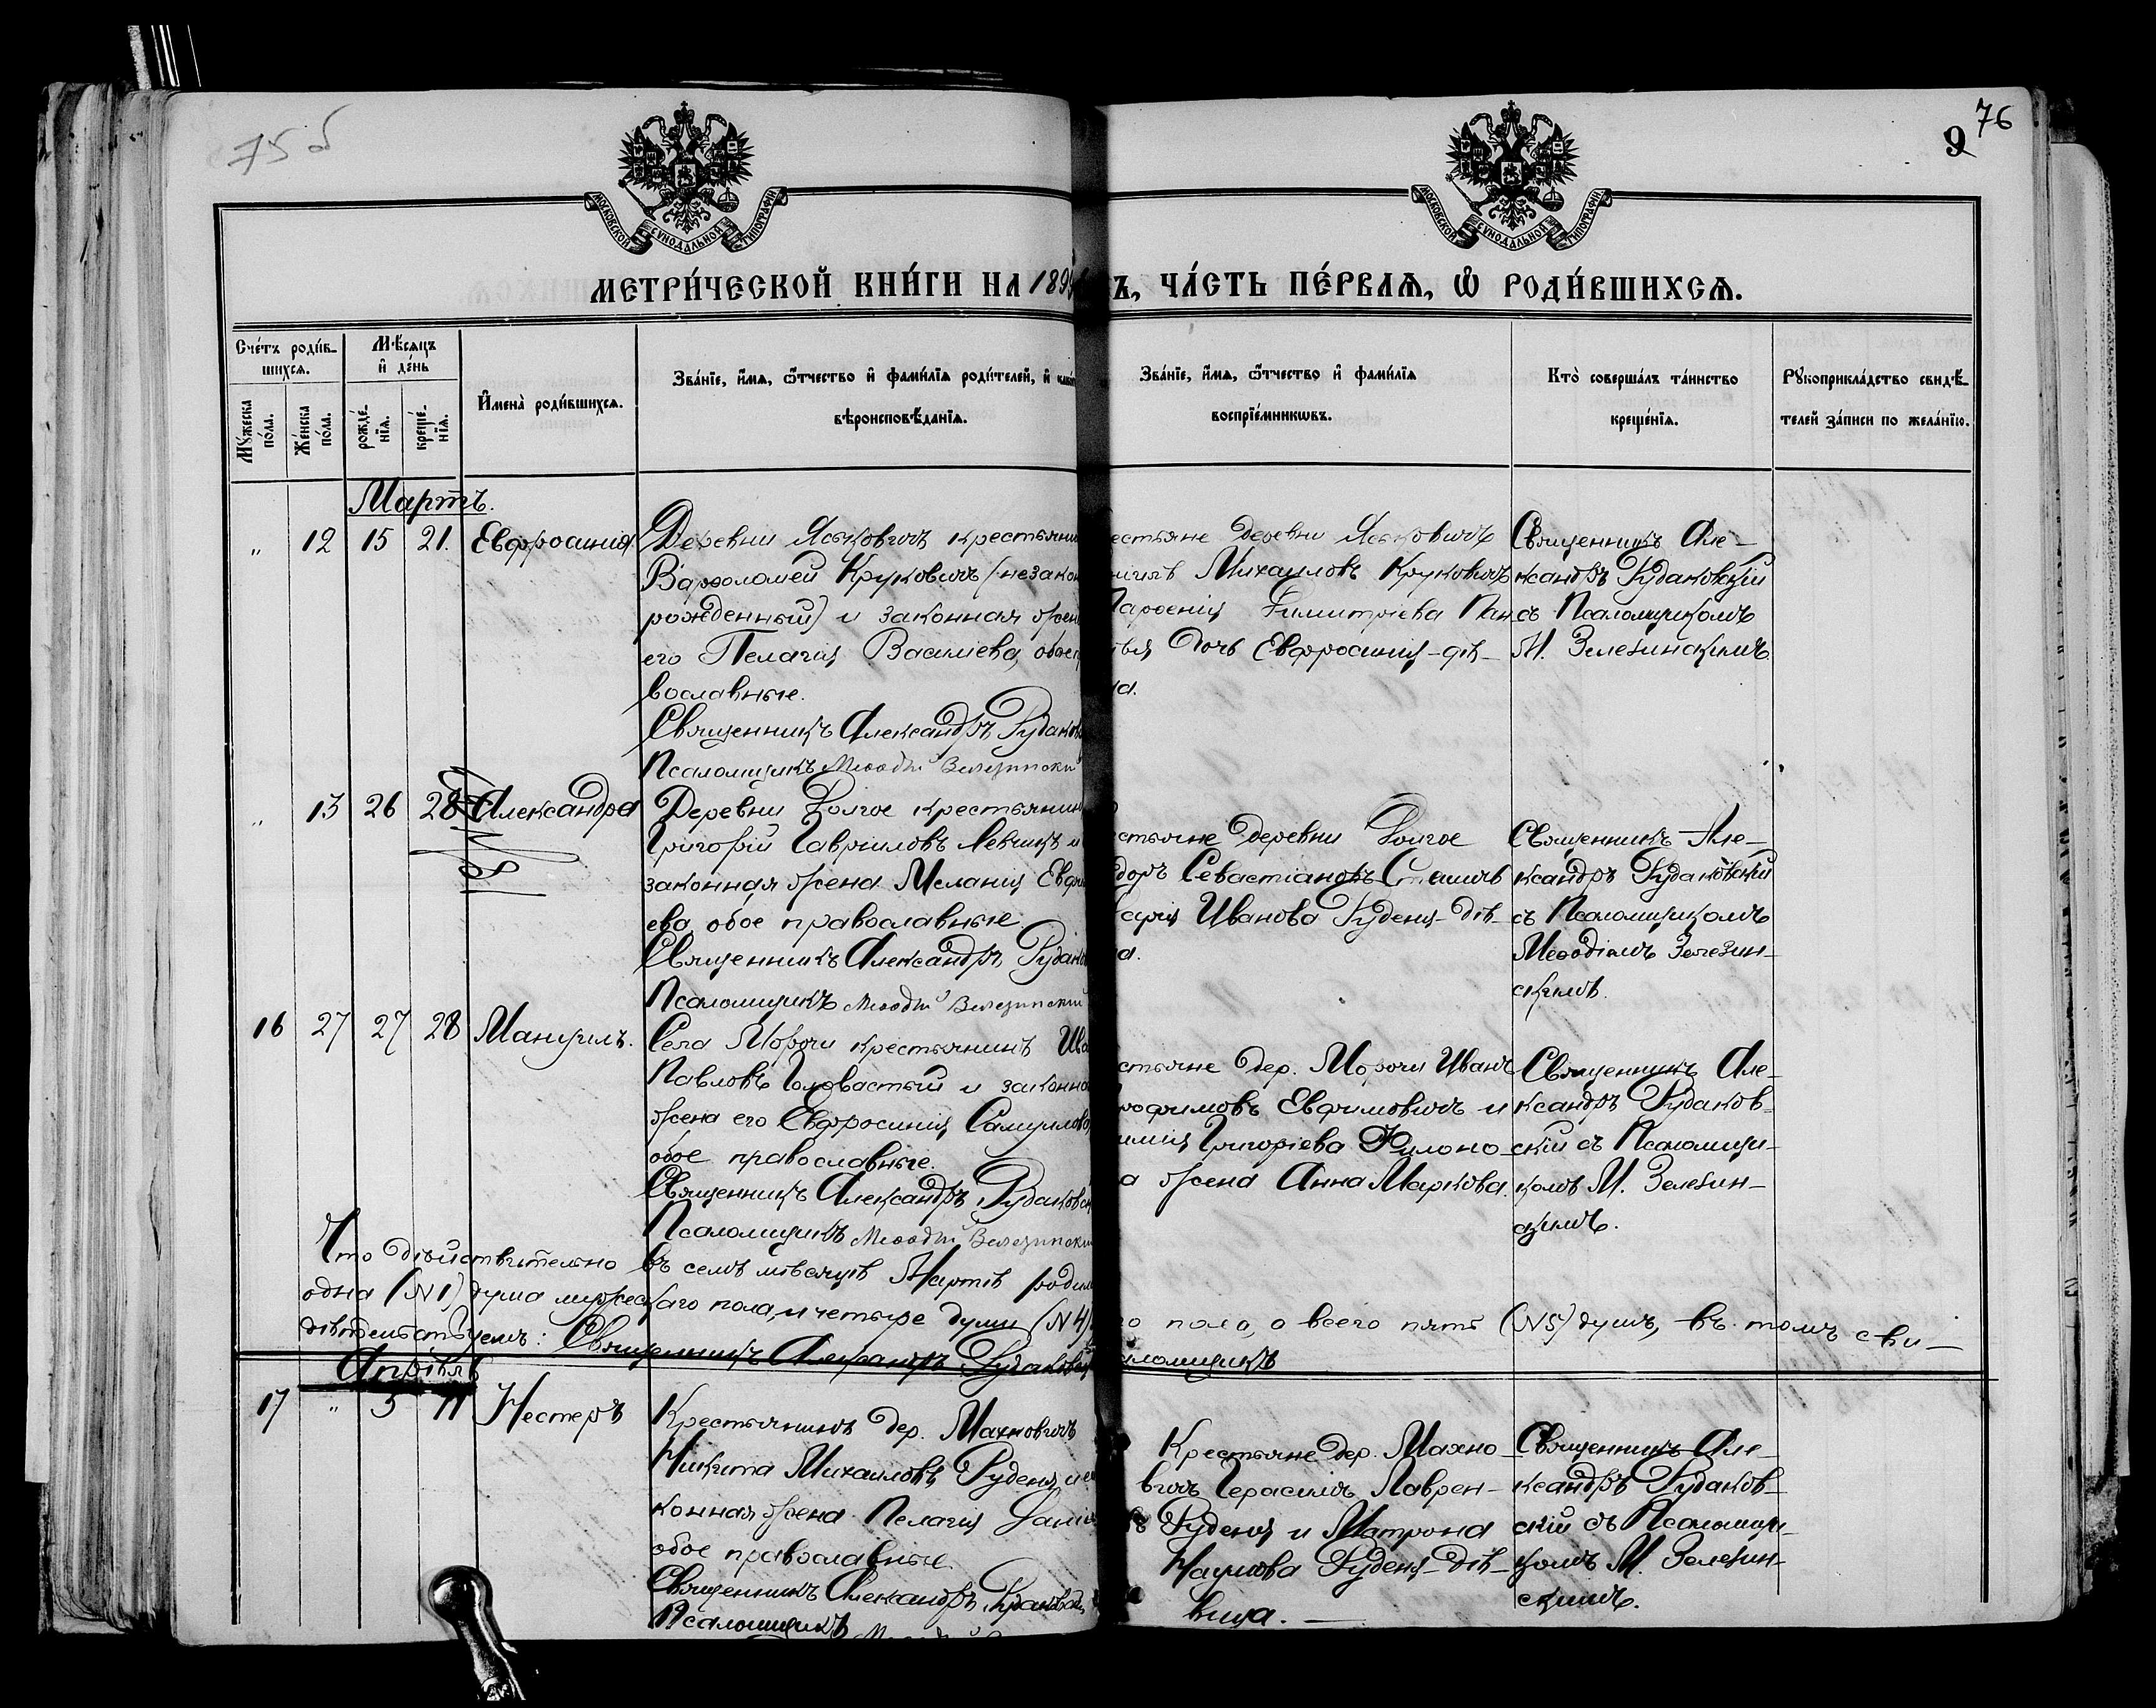 75б
76
9
МОСКОВСКОЙ СУНОДАЛЬНОЙ ТИПОГРАФІИ
МОСКОВСКОЙ СУНОДАЛЬНОЙ ТИПОГРАФІИ
МЕТРИ́ЧЕСКОЙ КНИ́ГИ НА 189
Ъ, ЧА́СТЬ ПЕ́РВАѦ, Ѽ РОДИ́ВШИХСѦ.
Сче́тъ роди́в-
шихсѧ.
Мѣ́сѧцъ
и҆ де́нь
Мꙋ́жеска по́ла.
Же́нска по́ла.
рожде́-
нїѧ.
креще́-
нїѧ.
И҆мена̀ роди́вшихсѧ.
Зва́нїе, и҆́мѧ, ѻ҆́тчество и҆ фами́лїѧ роди́телей, и҆
вѣроисповѣ́данїѧ.
Зва́нїе, и҆́мѧ, ѻ҆́тчество и҆ фами́лїѧ
воспрїе́мникѡвъ.
Кто̀ соверша́лъ та́инство
креще́нїѧ.
Рꙋкоприкла́дство свидѣ́-
телей за́писи по жела́нїю.
Мартъ.
" 12 15 21. Евфросинія
Деревни Яськовичъ крестьянин
Варѳоломей Круковичъ (незакон
рожденный) и законная жен
его Пелагія Василіева, обое п
вославные.
Священникъ Александръ Рудаков
Псаломщикъ Меѳодій Зелезинский
естьяне деревни Яськовичъ
Михаиловъ Круковичъ
Парѳенія Димитріева Пан
дочь Евфросинія-дѣ-
ца.
Священникъ Але-
ксандръ Рудаковскій
съ Псаломщикомъ
М. Зелезинскимъ
" 13 26 28 Александра
Деревни Долгое крестьянин
Григорій Гавріиловъ Левчикъ и
законная жена Меланія Евфи
ева, обое православные.
Священникъ Александръ Рудаков
Псаломщикъ Меѳодій Зелезинский
стьяне деревни Долгое
доръ Севастіановъ Сташъ
Иванова Руденя-дѣ-
ца.
Священникъ Але-
ксандръ Рудаковскій
съ Псаломщикомъ
Меѳодіемъ Зелезин-
скимъ.
16 27 27 28 Мануилъ.
Села Морочи крестьянинъ Ива
Павловъ Головастый и законна
жена его Евфросинія Самуилова,
обое православные.
Священникъ Александръ Рудаковск
Псаломщикъ Меѳодій Зелезинский
стьяне дер. Морочи Иванъ
рофимовъ Евфимовичъ и
Григоріева Филоно-
а жена Анна Маркова.
Священникъ Але-
ксандръ Рудаков-
скій съ Псаломщи-
комъ М. Зелезин-
скимъ.
Что дѣйствительно въ семъ мѣсяцѣ Мартѣ родил
одна (№1) душа мужескаго пола, и четыре души (№4)
го пола, а всего пять (№5) душъ, въ томъ сви-
дѣтельствуемъ: Священникъ Александръ Рудаковск
аломщикъ
Апрѣль
17 " 5 11 Нестеръ
Крестьянинъ дер. Махновичъ
Никита Михаиловъ Руденя, и за
конная жена Пелагія Даніи
обое православные.
Священникъ Александръ Рудаковск
Псаломщикъ
Крестьяне дер. Махно-
вичъ Герасимъ Лаврен-
въ Руденя и Матрона
Наумова Руденя-дѣ-
вица.
Священникъ Але-
ксандръ Рудаков-
скій съ Псаломщи-
комъ М. Зелезин-
скимъ.